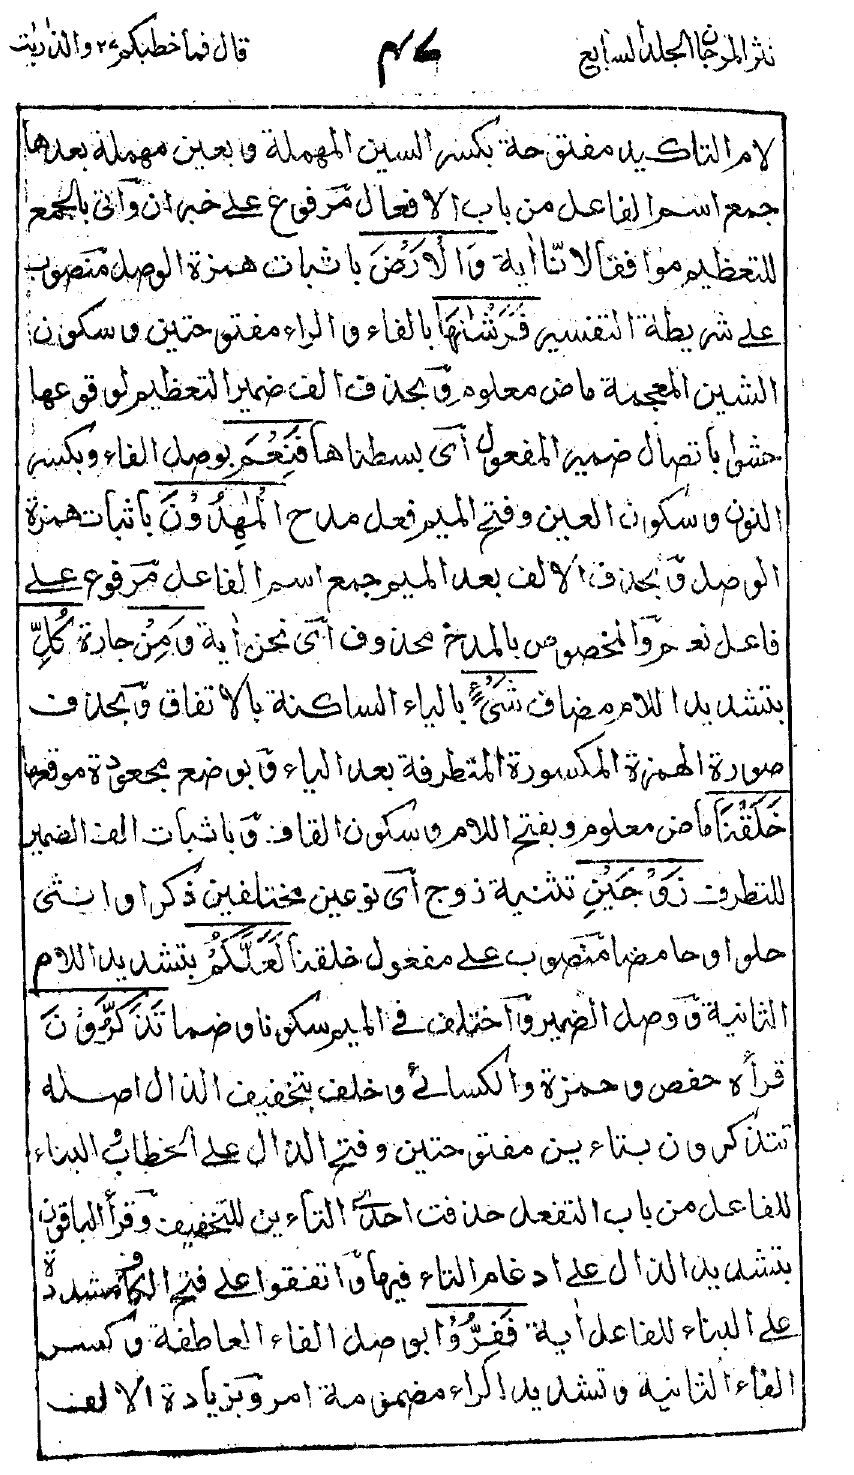 نثر المرجان الجلد السابع
قال فما خطبكم ٢٧ والذاريات
لام التاكيد مفتوحة بكسر السين المهملة وبعين مهملة بعدها
جمع اسم الفاعل من باب الافعال مرفوع على خبر ان وآتى بالجمع
للتعظيم موافقا لانّا اٰية وَالْاَرْضَ باثبات همزة الوصل منصوب
على شريطة التفسير فَرَشْنٰهَا بالفاء والراء مفتوحتين وسكون
الشين المعجمة ماض معلوم وبحذف الف ضمير التعظيم لوقوعها
حشوا باتصال ضمير المفعول اى بسطناها فَنِعْمَ بوصل الفاء وبكسر
النون وسكون العين وفتح الميم فعل مدح الْمٰهِدُوْنَ باثبات همزة
الوصل وبحذف الالف بعد الميم جمع اسم الفاعل مرفوع على
فاعل نعم والمخصوص بالمدح محذوف اى نحن اٰية وَمِنْ جارة كُلِّ
بتشديد اللام مضاف شَيْءٍ بالياء الساكنة بالاتفاق وبحذف
صورة الهمزة المكسورة المتطرفة بعد الياء وبوضع مجعودة موقعها
خَلَقْنَا ماض معلوم وبفتح اللام وسكون القاف وباثبات الف الضمير
للتطرف زَوْجَيْنِ تثنية زوج اى نوعين مختلفين ذكرا وانثى
حلوا وحامضا منصوب على مفعول خلقنا لَعَلَّكُمْ بتشديد اللام
الثانية ووصل الضمير واختلف فى الميم سكونا وضما تَذَكَّرُوْنَ
قرأه حفص وحمزة والكسائى وخلف بتخفيف الذال اصله
تتذكرون بتاءين مفتوحتين وفتح الذال على الخطاب والبناء
للفاعل من باب التفعل حذفت احدى التاءين للتخفيف وقرأ الباقون
بتشديد الذال على ادغام التاء فيها واتفقوا على فتح الكاف مشددة
على البناء للفاعل اٰية فَفِرُّوْا بوصل الفاء العاطفة وكسر
الفاء الثانية وتشديد الراء مضمومة امر وبزيادة الالف